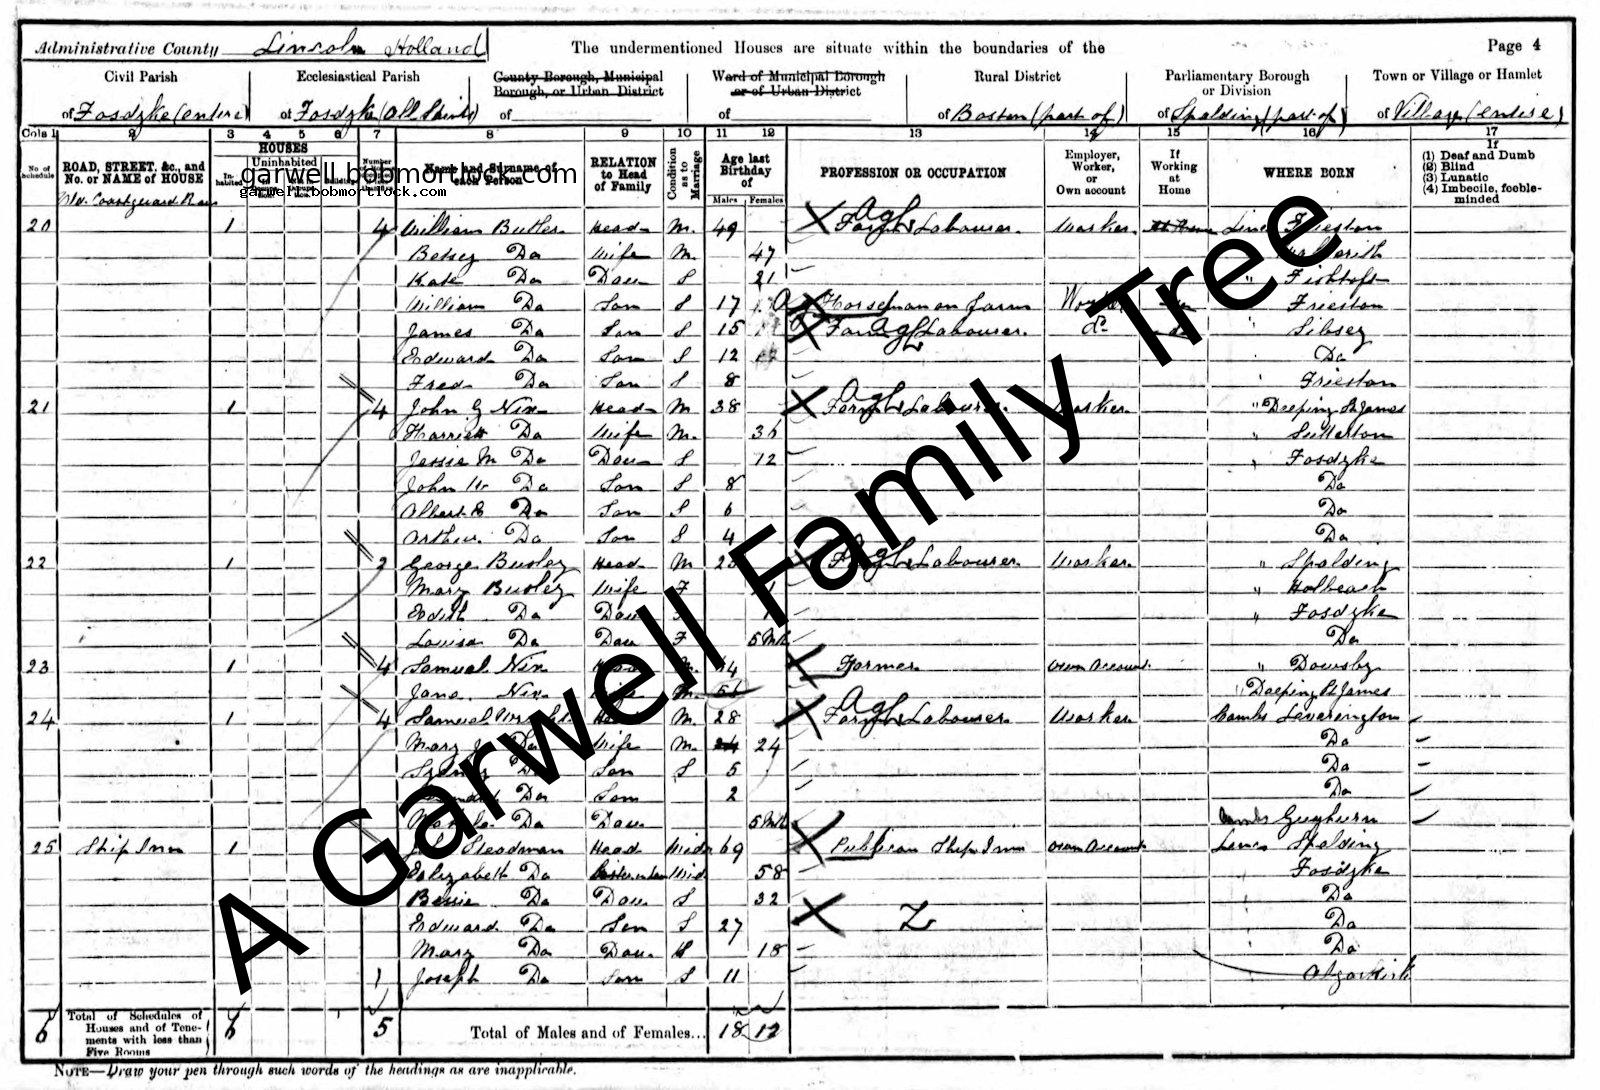 Administrative County Lincoln Holland The undermentioned Houses are situate within the boundaries of the Page 4
Civil Parish Ecclesiastical Parish County Borough, Municipal Borough, or Urban District Ward of Municipal Borough or of Urban District Rural District Parliamentary Borough or Division Town or Village or Hamlet
of Fosdyke (entire) of Fosdyke (All Saints) of of of Boston (part of) of Spalding (part of) of Village (entire)
Cols 1 2 3 4 5 6 7 8 9 10 11 12 13 14 15 16 17
No. of Schedule ROAD, STREET, &c., and No. or NAME of HOUSE HOUSES Inhabited Uninhabited Number Name and Surname of each Person RELATION to Head of Family Condition as to Marriage Age last Birthday of Males Females PROFESSION OR OCCUPATION Employer, Worker, or Own account If Working at Home WHERE BORN If (1) Deaf and Dumb (2) Blind (3) Lunatic (4) Imbecile, feeble-minded
garwell.bobmortlock.com
garwell.bobmortlock.com
Old Coastguard
20 1 4 William Butler Head M. 49 Agl Labourer. Worker. Linc Frieston
Betsey Do Wife M. 47
Kate Do Dau S 21 " Fishtoft
William Do Son S 17 Horseman on farm Frieston
James Do Son S 15 Farm Agl Labourer. do Sibsey
Edward Do Son S 12 Do
Fred Do Son S 8 Frieston
21 1 4 John G Nix Head M 38 Agl Labourer. Worker. " Deeping St James
Harriett Do Wife M. 36 " Sutterton
Jessie M Do Dau S 12 " Fosdyke
John W Do Son S 8 Do
Albert E Do Son S 6 Do
Arthur Do Son S 4 Do
22 1 2 George Busley Head M Agl Labourer Worker. " Spalding
Mary Busley Wife " Holbeach
Edith Do Dau " Fosdyke
Louisa Do Dau 5 Mth Do
23 1 4 Samuel Nix Head M. Farmer Own Account " Dowsby
Jane Nix Wife M. " Deeping St James
24 1 4 Samuel Head M. 28 Agl Labourer Worker Cambs Leverington
Mary Do Wife M. 24 Do
Do Son S 5 Do
Do Son 2 Do
Do Dau 5 Mth Cambs Guyhurn
25 Ship Inn 1 Steadman Head Widr 69 Publican Ship Inn Own Account Lincs Spalding
Elizabeth Do Sister in law Wid. 58 Fosdyke
Bessie Do Dau S 32 Do
Edward Do Son S 27 Do
Mary Do Dau. S 18 Do
1 Joseph Do Son S 11 Algarkirk
6 Total of Schedules of Houses and of Tenements with less than Five Rooms 6 5 Total of Males and of Females... 18 12
NOTE—Draw your pen through such words of the headings as are inapplicable.
A Garwell Family Tree